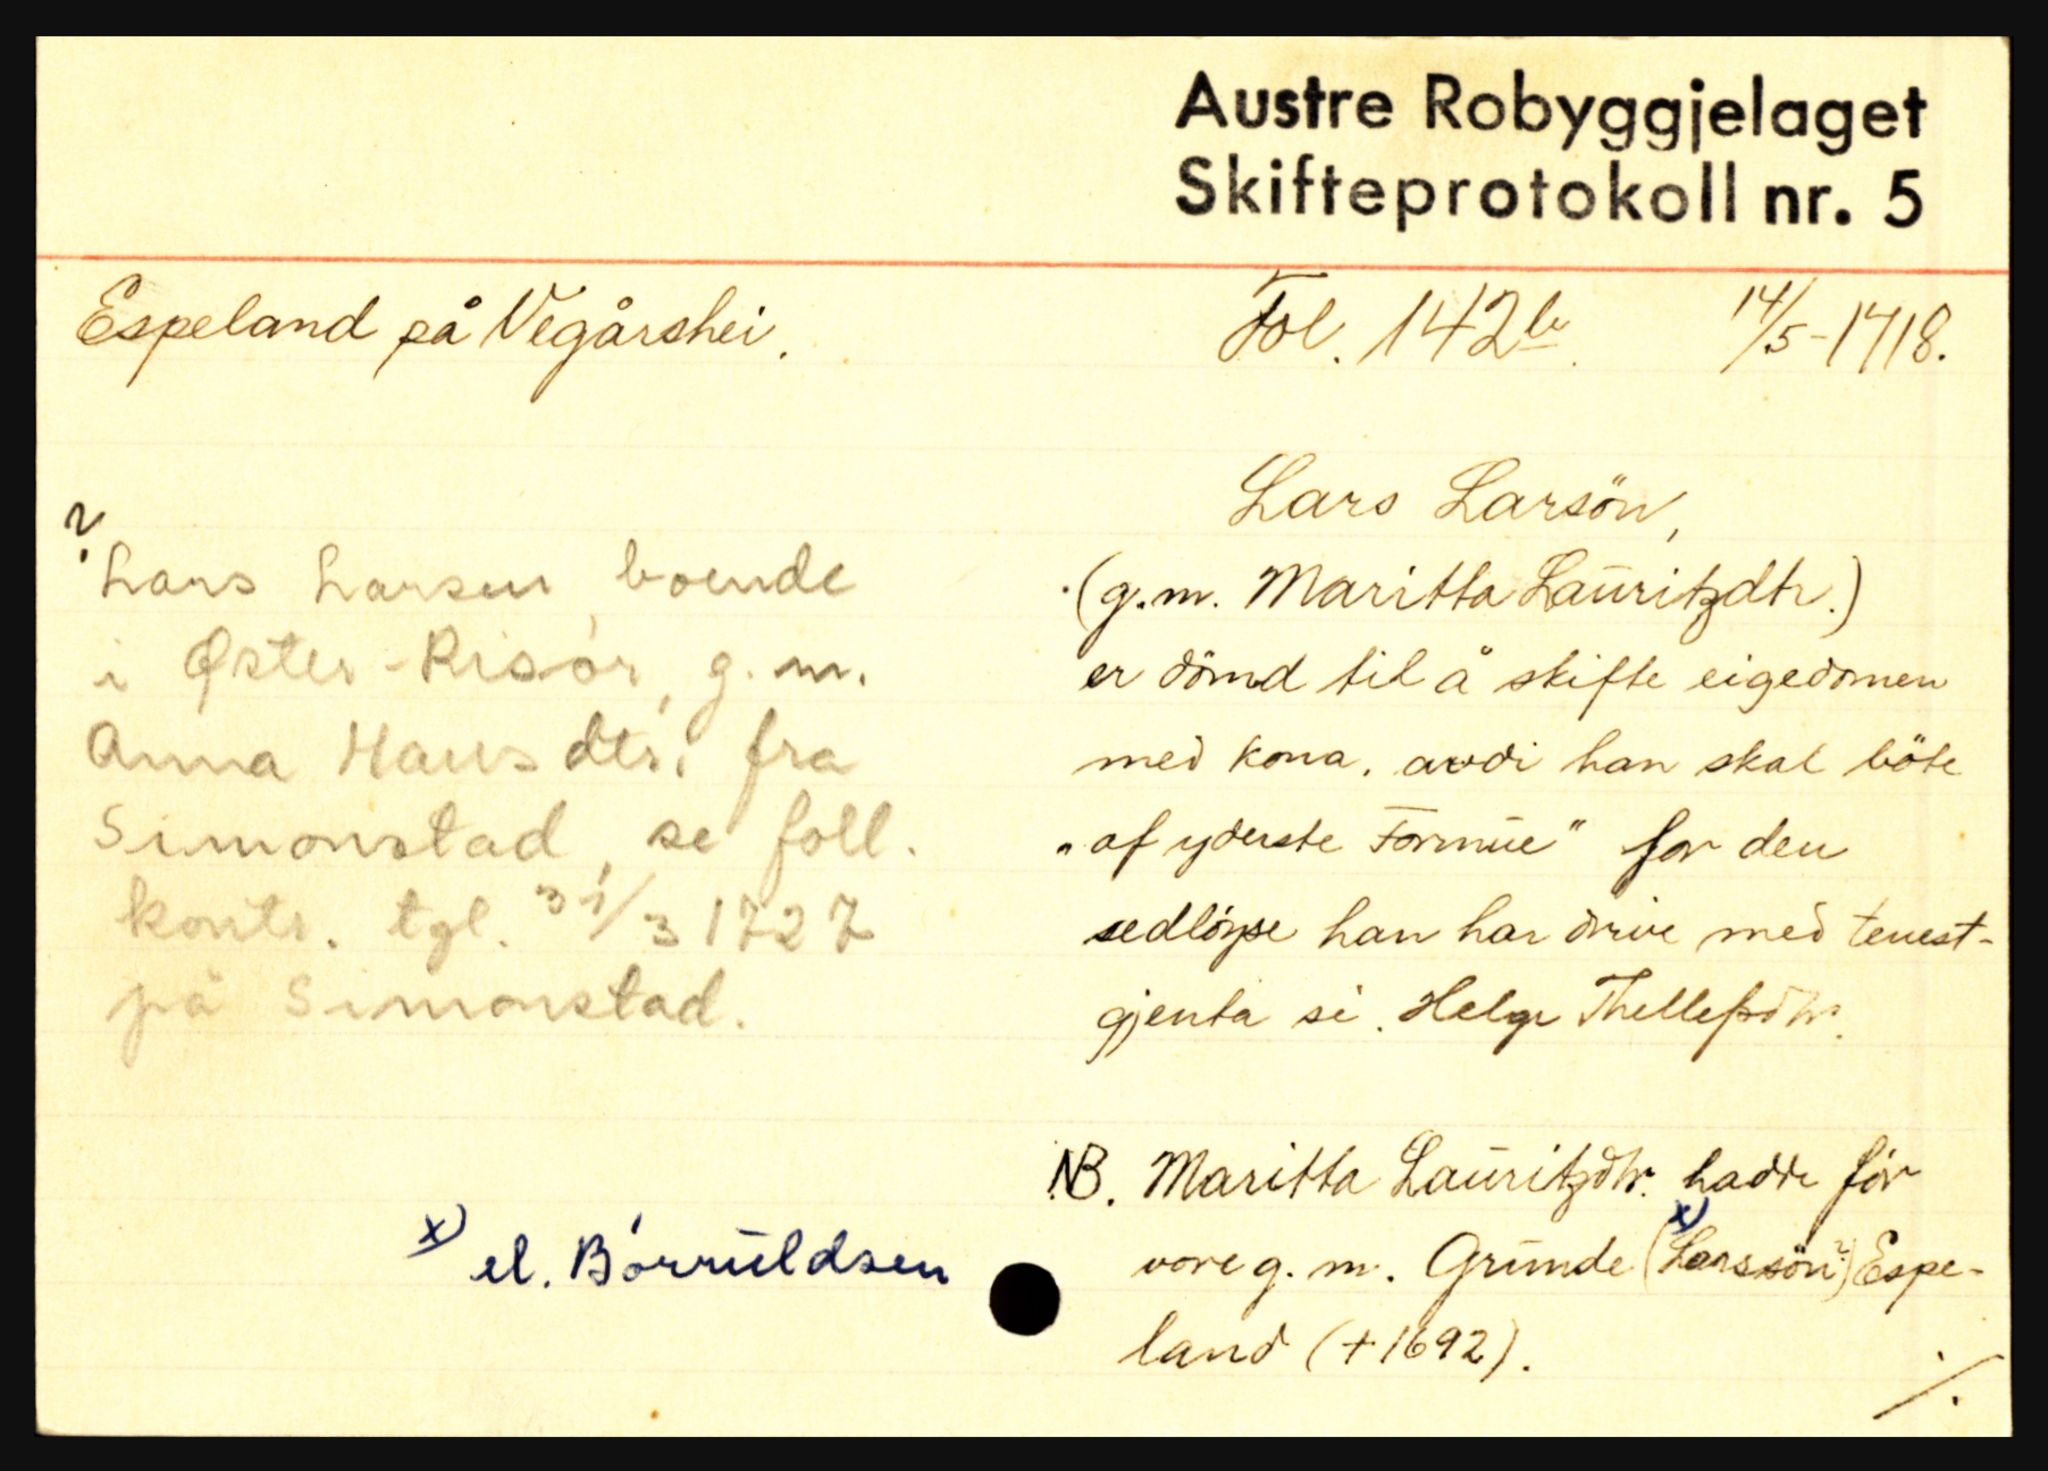 Austre Robyggjelaget
Skifteprotokoll nr. 5
Espeland på Vegårshei.
Fol. 142b. 14/5-1718.
Lars Larsön,
(g.m. Maritta Lauritzdtr.)
er dömd til å skifte eigedomen
med kona. avdi han skal böte
"af yderste Formue" for den
sedløyse han har drive med tenest-
gjenta si. Helge Thellefsdtr.
NB. Maritta Lauritzdtr. hadde før
vore g. m. Grunde (Larssön?) x) Espe-
land (+1692).
./.
?
Lars Larsen, boende
i Øster-Risør, g. m.
Anna Hansdtr. fra
Simonstad, se foll.
kontr. tgl. 31/3 1727
på Simonstad.
x) el. Børruldsen